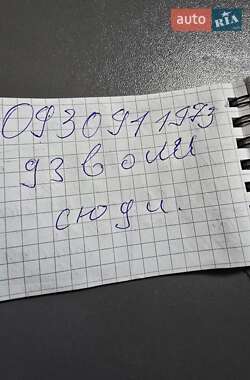 auto RIA
.com
0930911973
дзвони
сюди.